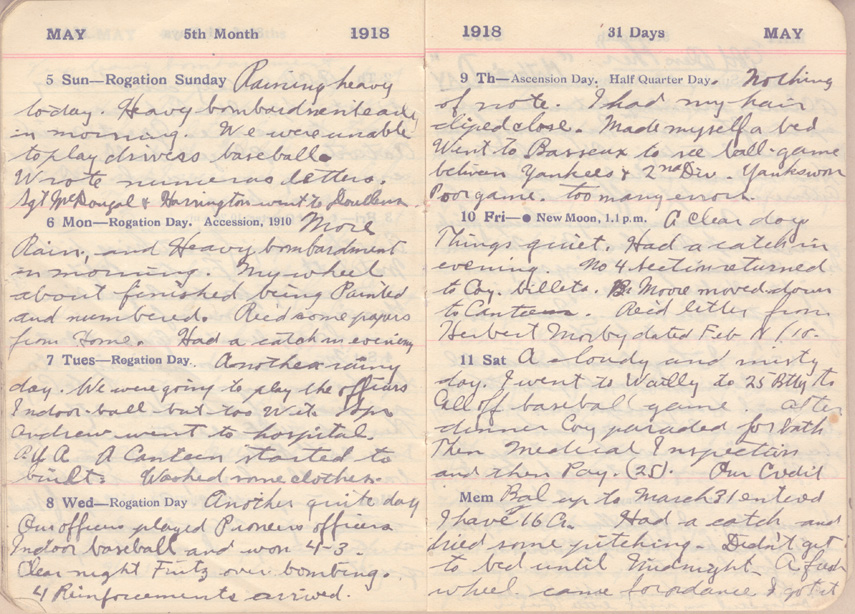 MAY 5th Month 1918
5 Sun—Rogation Sunday Raining heavy
today. Heavy bombardment early
in morning. We were unable
to play drivers baseball.
Wrote numerous letters.
Sgt McDougal & Harrington went to Doullens.
6 Mon—Rogation Day. Accession, 1910 More
Rain, and Heavy bombardment
in morning. My wheel
about finished being Painted
and numbered. Recd some papers
from Home. Had a catch in evening
7 Tues—Rogation Day. Another rainy
day. We were going to play the officers
Indoor ball but too wet.
Andrew went to hospital.
A Canteen started to
built. Washed some clothes.
8 Wed—Rogation Day Another quite day
Our officers played Pioneers officers
Indoor baseball and won 4-3.
Clear night Fritz over bombing.
4 Reinforcements arrived.
1918 31 Days MAY
9 Th—Ascension Day. Half Quarter Day. Nothing
of note. I had my hair
cliped close. Made myself a bed
Went to Basseux to see ball-game
between Yankees & 2nd Div. Yanks won
Poor game. too many errors.
10 Fri—● New Moon, 1.1 p.m. A clear day
Things quiet. Had a catch in
evening. No 4 Section returned
to Coy. billets. B. Moore moved down
to Canteen. Recd letter from
Herbert Morby dated Feb
11 Sat A cloudy and misty
day. I went to Wailly to 25 Btty to
Call off baseball game. After
dinner Coy paraded for bath
Then Medical Inspection
and then Pay. (25). Our Credit
Mem Bal up to March 31 entered
I have 16 Had a catch and
tried some pitching. Didn't get
to bed until Midnight. A fresh
wheel came for ordance I got it